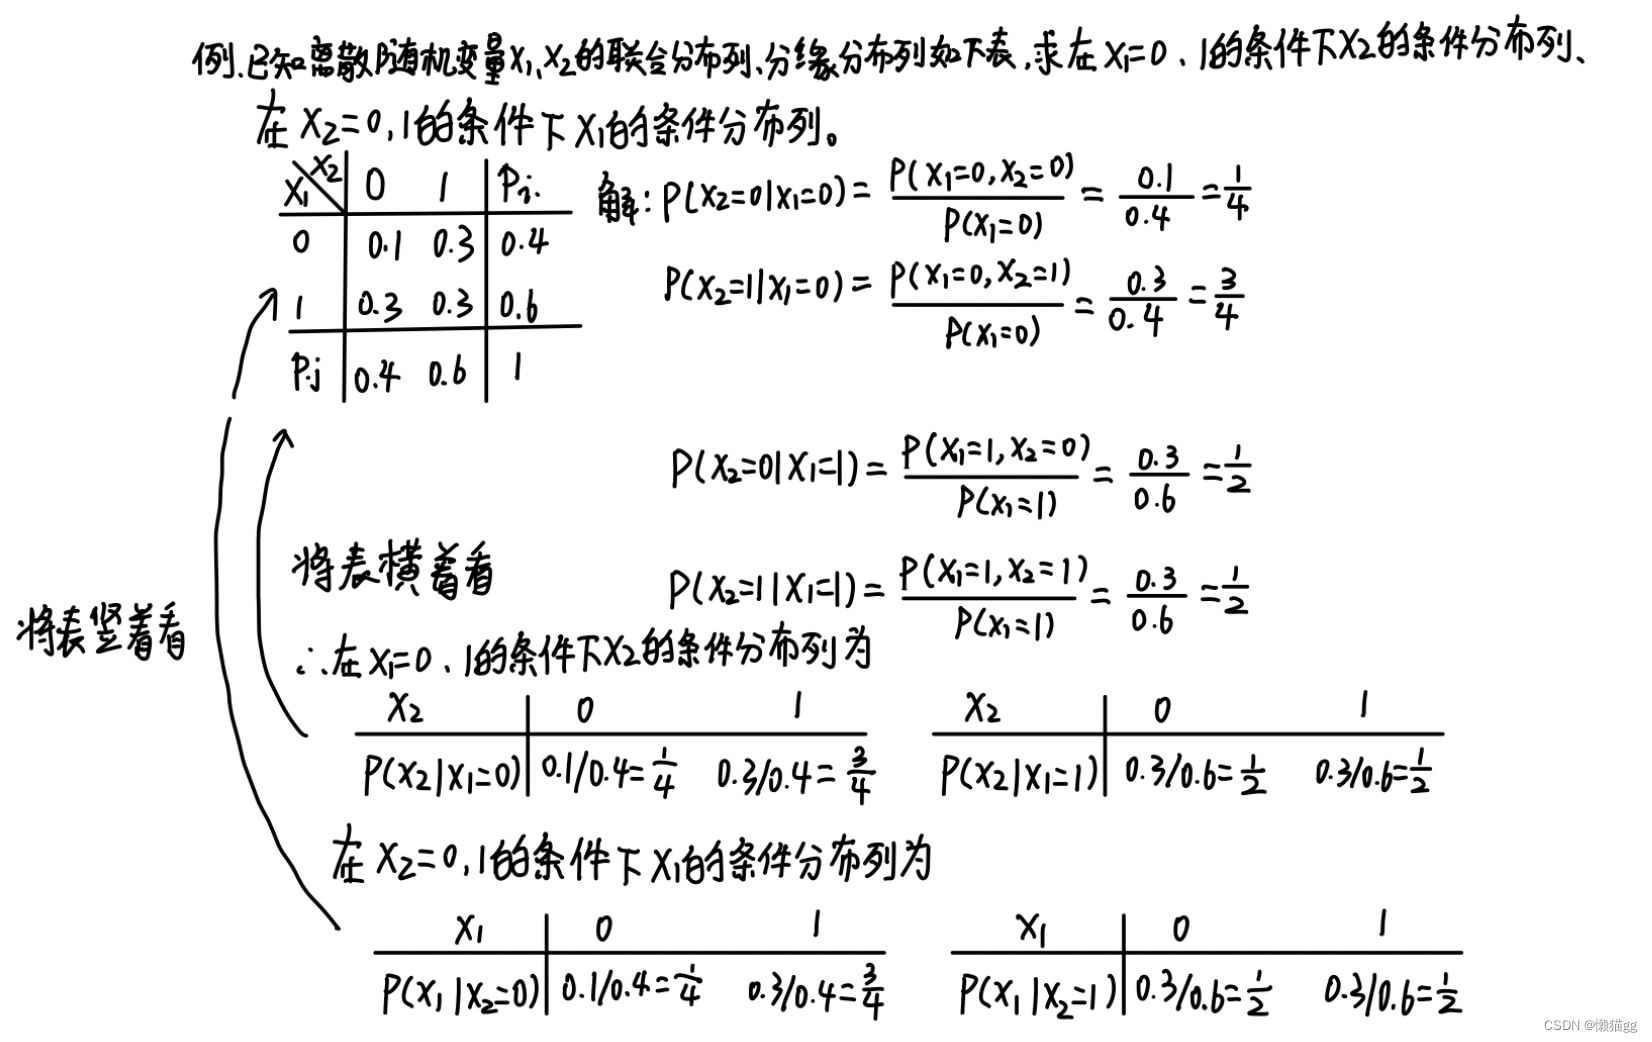 例.已知离散随机变量X₁、X₂的联合分布列、分缘分布列如下表,求在X₁=0、1的条件下X₂的条件分布列、
在X₂=0,1的条件下X₁的条件分布列。
X₁\X₂ | 0 1 | Pᵢ.
0 | 0.1 0.3 | 0.4
1 | 0.3 0.3 | 0.6
P.j | 0.4 0.6 | 1
解: P(X₂=0|X₁=0) = P(X₁=0,X₂=0)/P(X₁=0) = 0.1/0.4 = 1/4
P(X₂=1|X₁=0) = P(X₁=0,X₂=1)/P(X₁=0) = 0.3/0.4 = 3/4
P(X₂=0|X₁=1) = P(X₁=1,X₂=0)/P(X₁=1) = 0.3/0.6 = 1/2
P(X₂=1|X₁=1) = P(X₁=1,X₂=1)/P(X₁=1) = 0.3/0.6 = 1/2
将表横着看
将表竖着看
∴在X₁=0、1的条件下X₂的条件分布列为
X₂ | 0 1
P(X₂|X₁=0) | 0.1/0.4=1/4 0.3/0.4=3/4
X₂ | 0 1
P(X₂|X₁=1) | 0.3/0.6=1/2 0.3/0.6=1/2
在X₂=0,1的条件下X₁的条件分布列为
X₁ | 0 1
P(X₁|X₂=0) | 0.1/0.4=1/4 0.3/0.4=3/4
X₁ | 0 1
P(X₁|X₂=1) | 0.3/0.6=1/2 0.3/0.6=1/2
CSDN @懒猫gg